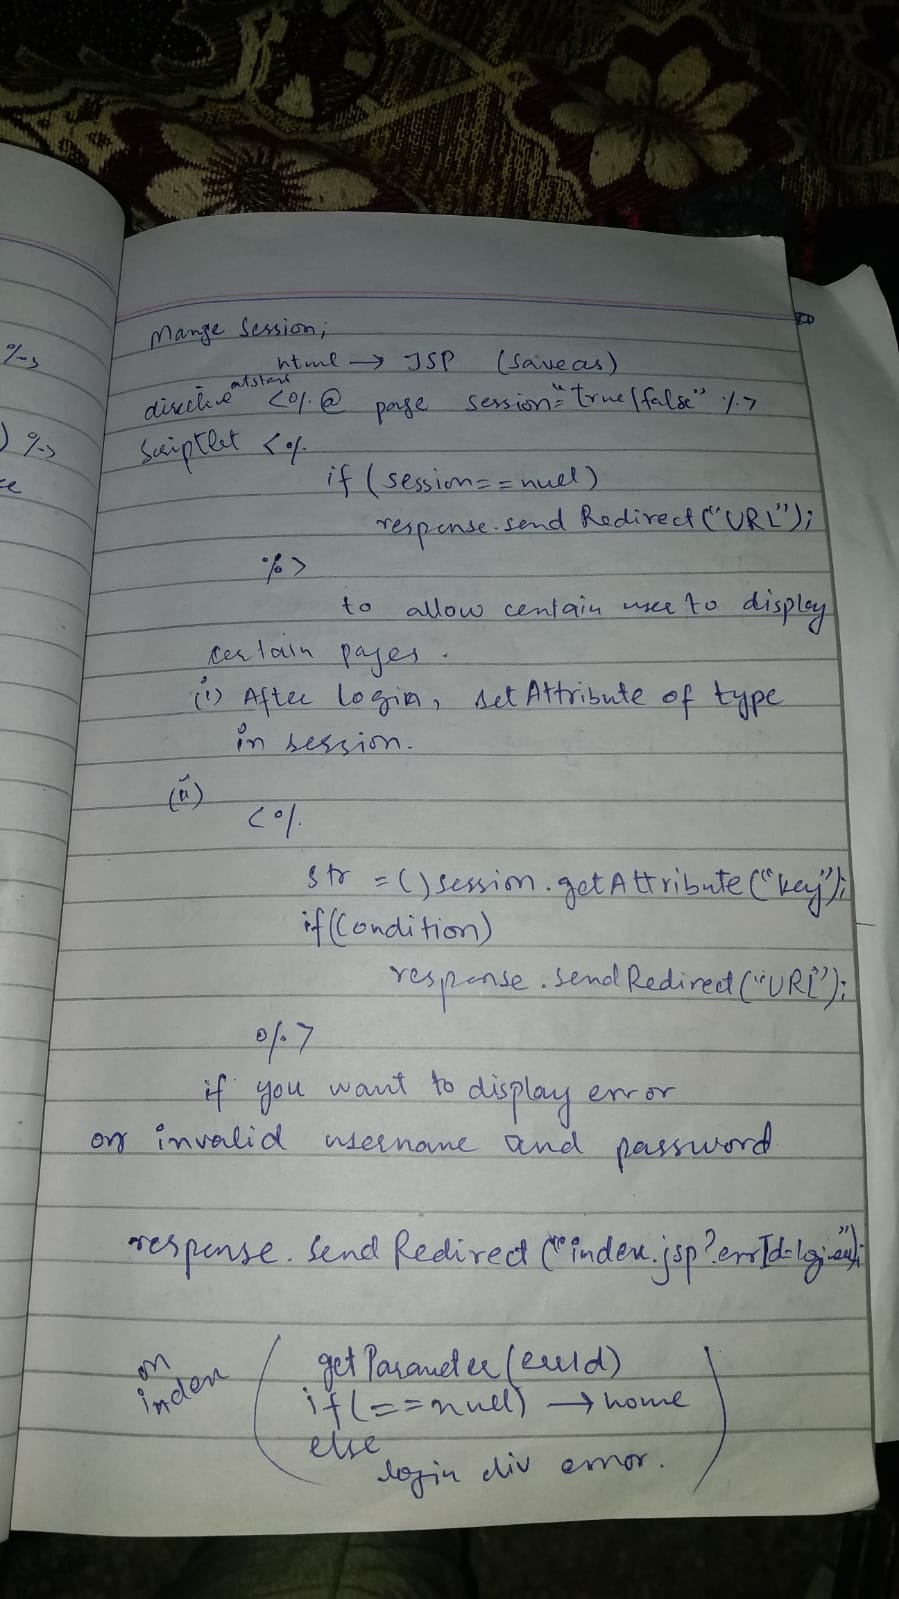 %>
) %>
Mange Session;
html → JSP (save as)
directive atstart <%@ page session="true/false" %>
Scriptlet <%
if (session==null)
response.send Redirect("URL");
%>
to allow centain user to display
certain pages.
(i) After login, set Attribute of type
in session.
(ii)
<%
str = ( ) session.getAttribute("key");
if(Condition)
response.sendRedirect("URL");
%>
if you want to display error
on invalid username and password
response.send Redirect("index.jsp?errId=
on
index
getParameter(errId)
if(==null) → home
else
login div error.